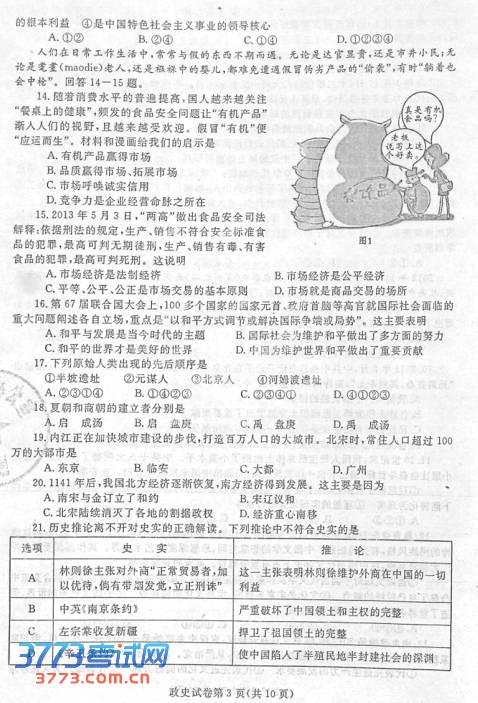 的根本利益　④是中国特色社会主义事业的领导核心
A.①②　B.②④　C.①④　D.①②③④
人们在日常工作生活中，常常与假的东西不期而遇。无论是达官显贵，还是市井小民；无
论是耄耋(maodie)老人，还是襁褓中的婴儿，都难免遭遇假冒伪劣产品的“偷袭”，有时“躺着也
会中枪”。回答14－15题。
14.随着消费水平的普遍提高，国人越来越关注
“餐桌上的健康”，频发的食品安全问题让“有机产品”
渐入人们的视野，且越来越受欢迎。假冒“有机”便
“应运而生”。材料和漫画给我们的启示是
A.有机产品赢得市场
B.品质赢得市场、拓展市场
C.市场呼唤诚实信用
D.竞争力是企业经营命脉之所在
真是有机
食品吗？
老板
说写上这
个好卖。
食品
图1
15.2013年5月3日，“两高”做出食品安全司法
解释：依据刑法的规定，生产、销售不符合安全标准食
品的犯罪，最高可判无期徒刑，生产、销售有毒、有害
食品的犯罪，最高可判死刑。这说明
A.市场经济是法制经济　B.市场经济是公平经济
C.平等、公平、公正是市场交易的基本原则　D.市场就是商品交易的场所
16.第67届联合国大会上，100多个国家的国家元首、政府首脑等高官就国际社会面临的
重大问题阐述各自立场，重点是“以和平方式调节或解决国际争端或局势”。这主要表明
A.和平与发展是当今时代的主题　B.国际社会为维护和平做出了多方面的努力
C.和平的世界才是美好的世界　D.中国为维护世界和平做出了重要贡献
17.下列原始人类出现的先后顺序是
①半坡遗址　②元谋人　③北京人　④河姆渡遗址
A.②③①④　B.①④②③　C.②③④①　D.④①②③
18.夏朝和商朝的建立者分别是
A.启　成汤　B.启　盘庚　C.禹　盘庚　D.禹　成汤
19.内江正在加快城市建设的步伐，打造百万人口的大城市。北宋时，常住人口超过100
万的大都市是
A.东京　B.临安　C.大都　D.广州
20.1141年后，我国北方经济逐渐恢复，南方经济得到发展。这主要是因为
A.南宋与金订立了和约　B.宋辽议和
C.北宋陆续消灭了各地的割据政权　D.经济重心南移
21.历史推论离不开对史实的正确解读。下列推论中不符合史实的是
选项　史　实　推　论
A　林则徐主张对外商“正常贸易者，加以优待，倘有带烟发觉，立正刑诛”　这一主张表明林则徐维护外商在中国的一切利益
B　中英《南京条约》　严重破坏了中国领土和主权的完整
C　左宗棠收复新疆　捍卫了祖国领土的完整
使中国陷入了半殖民地半封建社会的深渊
3773考试网
3773.com.cn
政史试卷第3页(共10页)